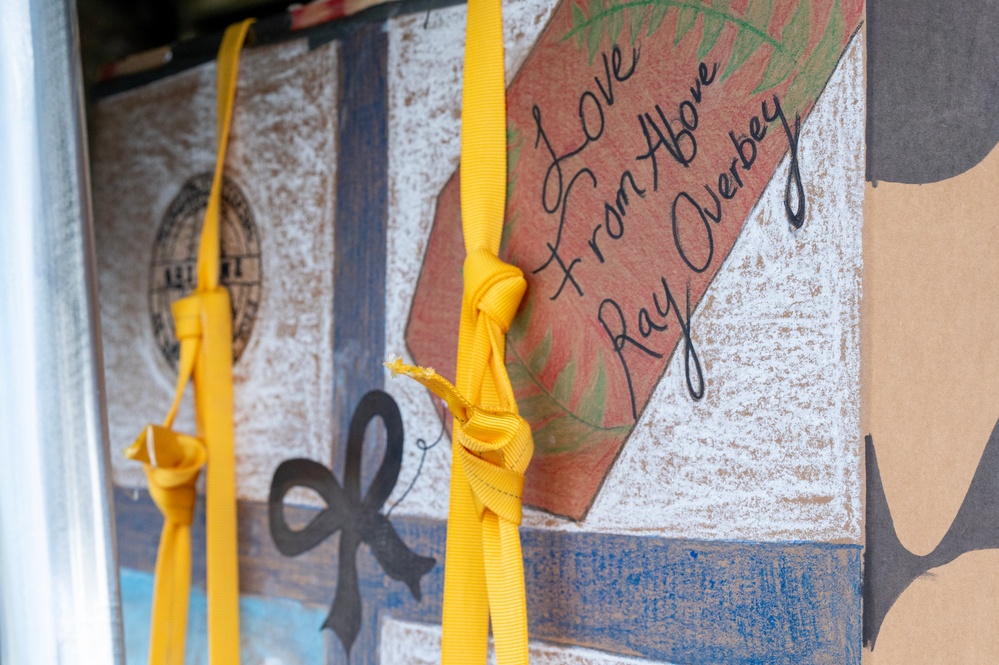 Love
From Above
Ray Overbey